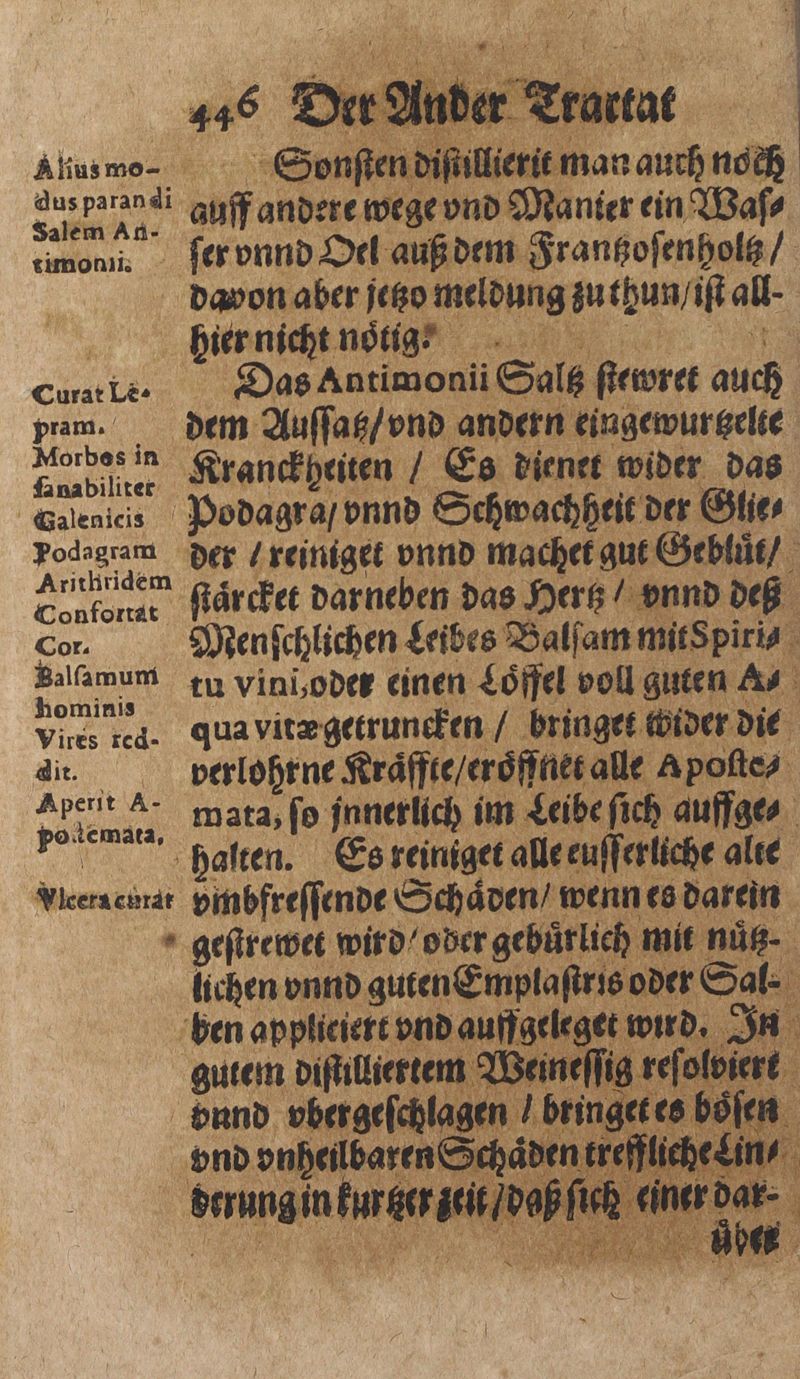 446 Der Ander Tractat
Alius mo-
dus parandi
Salem An-
timonii.
Curat Le-
pram.
Morbos in
sanabiliter
Galenicis
Podagram
Arithridem
Confortat
Cor.
Balsamum
hominis
Vires red-
dit.
Aperit A-
postemata,
Vlcera curat
Sonſten diſtillierit man auch noch
auff andere wege vnd Manier ein Waſ-
ſer vnnd Oel auß dem Frantzoſenholtz /
davon aber jetzo meldung zu thun/ iſt all-
hier nicht nötig.
Das Antimonii Saltz ſtewret auch
dem Auſſatz/ vnd andern eingewurtzelte
Kranckheiten / Es dienet wider das
Podagra/ vnnd Schwachheit der Glie-
der / reiniget vnnd machet gut Geblüt/
ſtärcket darneben das Hertz / vnnd deß
Menſchlichen Leibes Balſam mit Spiri-
tu vini, oder einen Löffel voll guten A-
qua vitæ getruncken / bringet wider die
verlohrne Kräffte/ eröffnet alle Apoſte-
mata, ſo jnnerlich im Leibe ſich auffge-
halten. Es reiniget alle euſſerliche alte
vmbfreſſende Schäden/ wenn es darein
geſtrewet wird/ oder gebürlich mit nütz-
lichen vnnd guten Emplaſtris oder Sal-
ben appliciert vnd auffgeleget wird. In
gutem diſtilliertem Weineſſig reſolviert
vnnd vbergeſchlagen / bringet es böſen
vnd vnheilbaren Schäden treffliche Lin-
derung in kurtzer zeit / daß ſich einer dar-
über